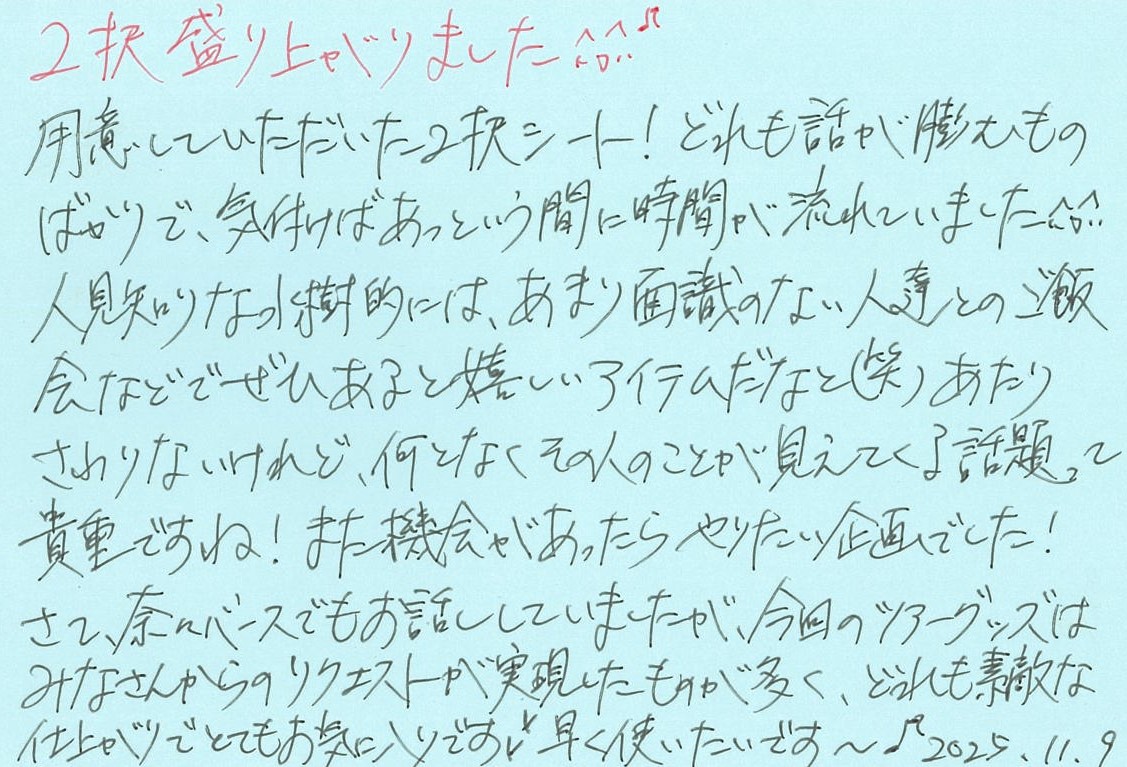 2択盛り上がりました^^♪
用意していただいた2択シート!どれも話が膨らむもの
ばかりで、気付けばあっという間に時間が流れていました^^
人見知りな水樹的には、あまり面識のない人達とのご飯
会などでぜひあると嬉しいアイテムだなと(笑)あたり
さわりないけれど、何となくその人のことが見えてくる話題って
貴重ですね!また機会があったらやりたい企画でした!
さて、奈々バースでもお話ししていましたが、今回のツアーグッズは
みなさんからのリクエストが実現したものが多く、どれも素敵な
仕上がりでとてもお気に入りです!早く使いたいです〜♪2025.11.9